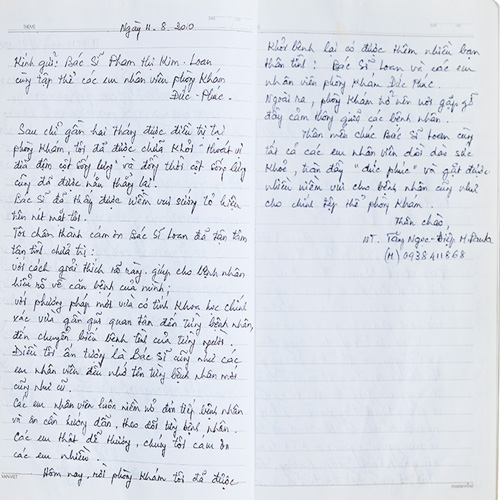 Ngày 11.8.2010
Kính gửi: Bác Sĩ Phạm Thị Kim-Loan
cùng tập thể các em nhân viên phòng Khám
Đức-Phúc.
Sau chỉ gần hai tháng được điều trị tại
phòng Khám, tôi đã được chữa khỏi "Thoát vị
đĩa đệm cột sống lưng" và đồng thời cột sống lưng
cũng đã được nắn thẳng lại.
Bác Sĩ đã thấy được niềm vui sướng tơ hiện
trên nét mặt tôi.
Tôi chân thành cám ơn Bác Sĩ Loan đã tận tâm
tận tình chữa trị:
với cách giải thích rõ ràng giúp cho bệnh nhân
hiểu rõ về căn bệnh của mình;
với phương pháp mới vừa có tính Khoa học chính
xác vừa gần gũi quan tâm đến từng bệnh nhân,
đến chuyển biến bệnh tật của từng người.
Điều tôi ấn tượng là Bác Sĩ cũng như các
em nhân viên đều nhớ tên từng bệnh nhân mới
cũng như cũ.
Các em nhân viên luôn niềm nở đón tiếp bệnh nhân
và ân cần hướng dẫn, theo dõi từng bệnh nhân.
Các em thật dễ thương, chúng tôi cám ơn
các em nhiều.
Hôm nay, rời phòng Khám tôi đã được
Khỏi bệnh lại có được thêm nhiều bạn
thân tình: Bác Sĩ Loan và các em
nhân viên phòng Khám Đức Phúc.
Ngoài ra, phòng Khám trở nên nơi gặp gỡ
đầy cảm thông giữa các bệnh nhân.
Thân mến chúc Bác Sĩ Loan cùng
tất cả các em nhân viên dồi dào sức
Khỏe, tràn đầy "đức phúc" và gặt được
nhiều niềm vui cho bệnh nhân cũng như
cho chính tập thể phòng Khám.
Thân chào,
NT. Tăng Ngọc-Điệp M.Paula
(M) 0938411868